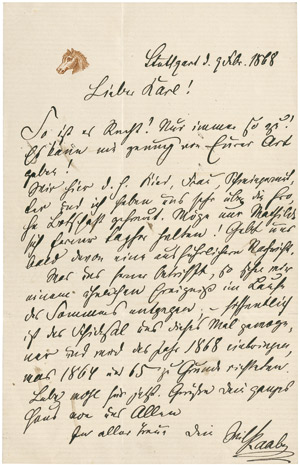 Stuttgart d. 9 Febr. 1868
Lieber Karl!
So ist es Recht! Nur immer so zu!
Es kann nie genung von Eurer Art
geben!
Wir hier d. h.
der und ich haben uns sehr über die fro-
he Botschaft gefreut. Möge nur Mathilde
sich ferner tapfer halten! Gebt uns
bald davon eine ausführlichere Nachricht.
Was das ferner betrifft, so sehen wir
einem ähnlichen Ereigniß im Laufe
des Sommers entgegen, – hoffentlich
ist das Schicksal uns dieses Mal gewogen,
nur und wird das Jahr 1868 einbringen,
was 1864 u. 65 zu Grunde richteten.
Lebe wohl für jetzt. Grüße dein ganzes
Haus von uns Allen
In aller Treue Dein
Raabe